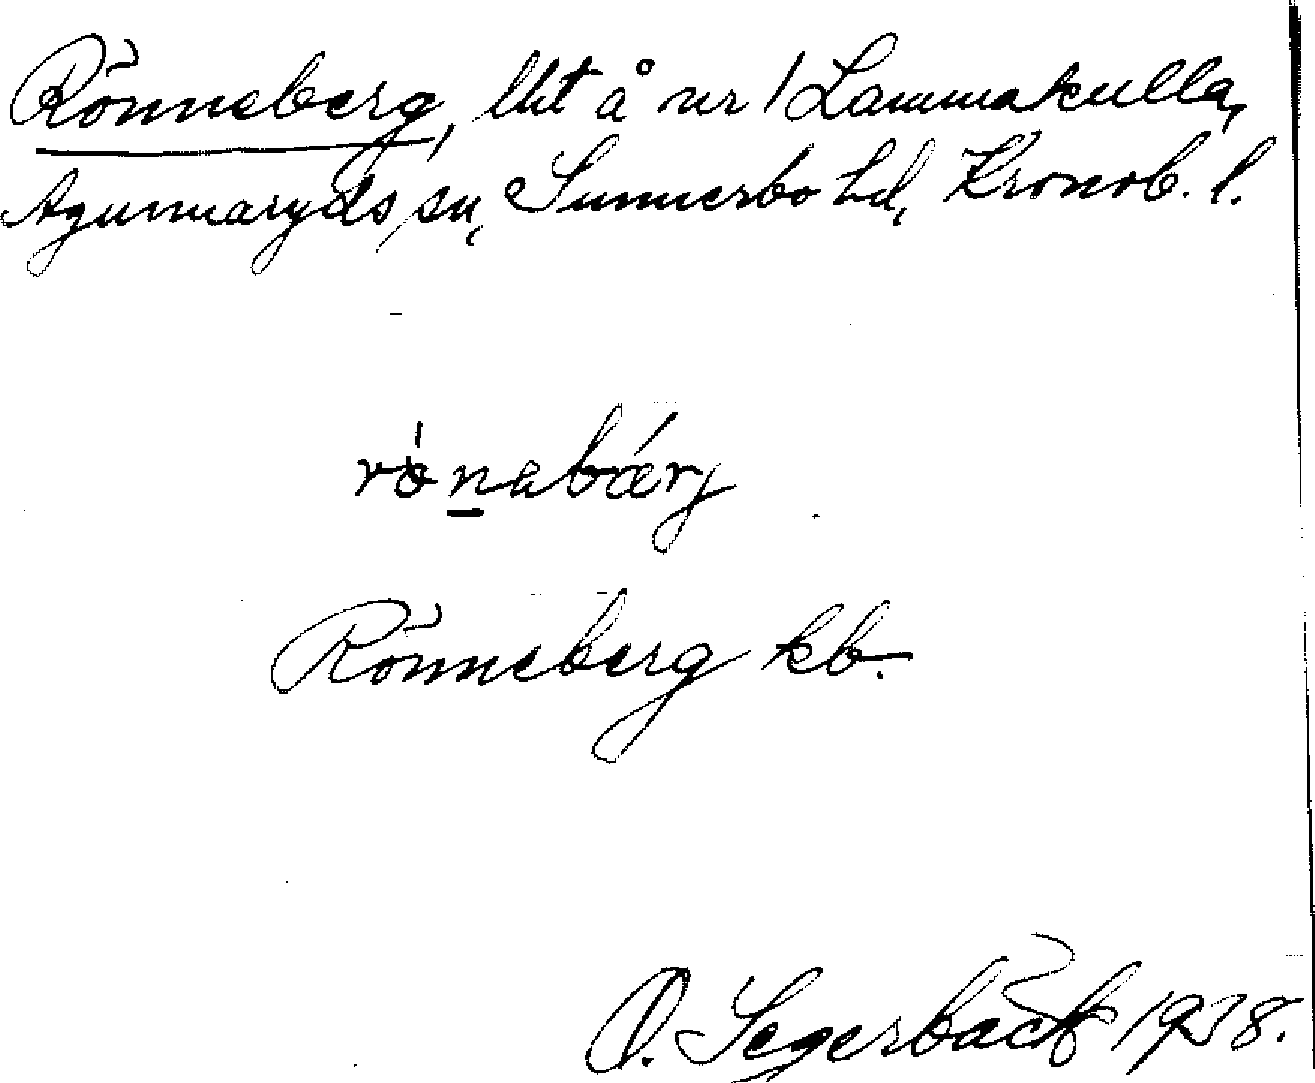 Rönneberg, lht å nr 1 Lammakulla,
Agunnaryds sn, Sunnerbo hd, Kronob. l.
rö̀nabǽrj
Rönneberg kb.
O. Segerbäck 1938.